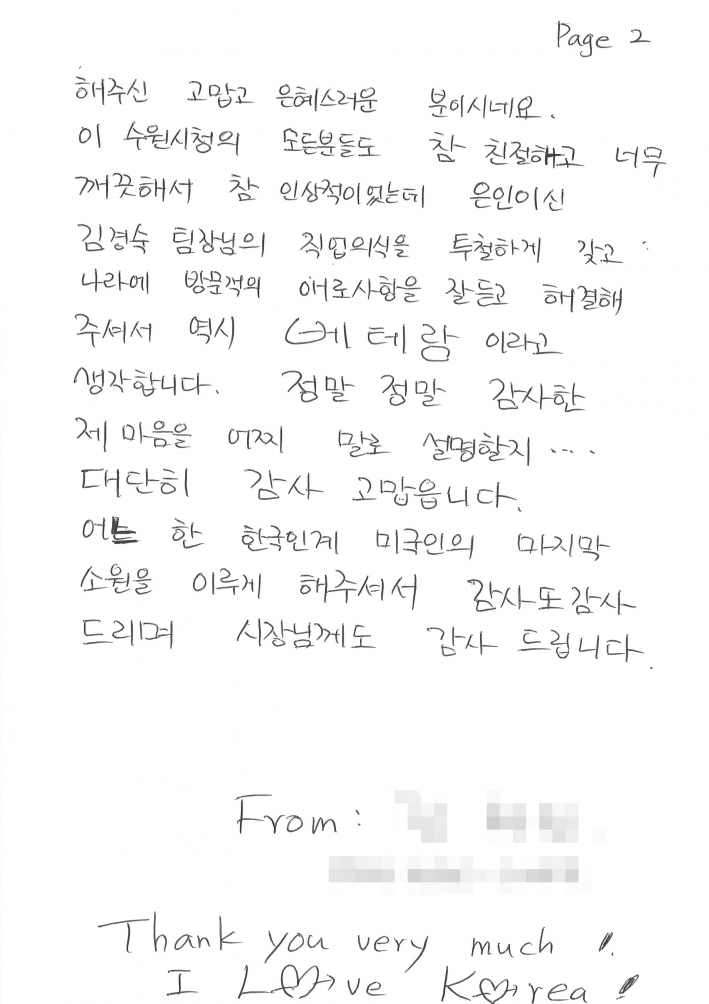 Page 2
해주신 고맙고 은혜스러운 분이시네요.
이 수원시청의 모든분들도 참 친절해고 너무
깨끗해서 참 인상적이었는데 은인이신
김경숙 팀장님의 직업의식을 투철하게 갖고
나라에 방문객의 애로사항을 잘듣고 해결해
주셔서 역시 베테랑 이라고
생각합니다. 정말 정말 감사한
제 마음을 어찌 말로 설명할지....
대단히 감사 고맙읍니다.
어느 한 한국인계 미국인의 마지막
소원을 이루게 해주셔서 감사또감사
드리며 시장님께도 감사 드립니다.
From:
Thank you very much !.
I Love Korea !